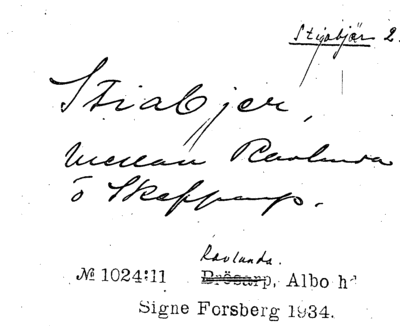 Stiabjär 2.
Stiabjer,
mellan Ravlunda
o Skepparp.
Ravlunda.
№ 1024:11 Brösarp, Albo hd
Signe Forsberg 1934.